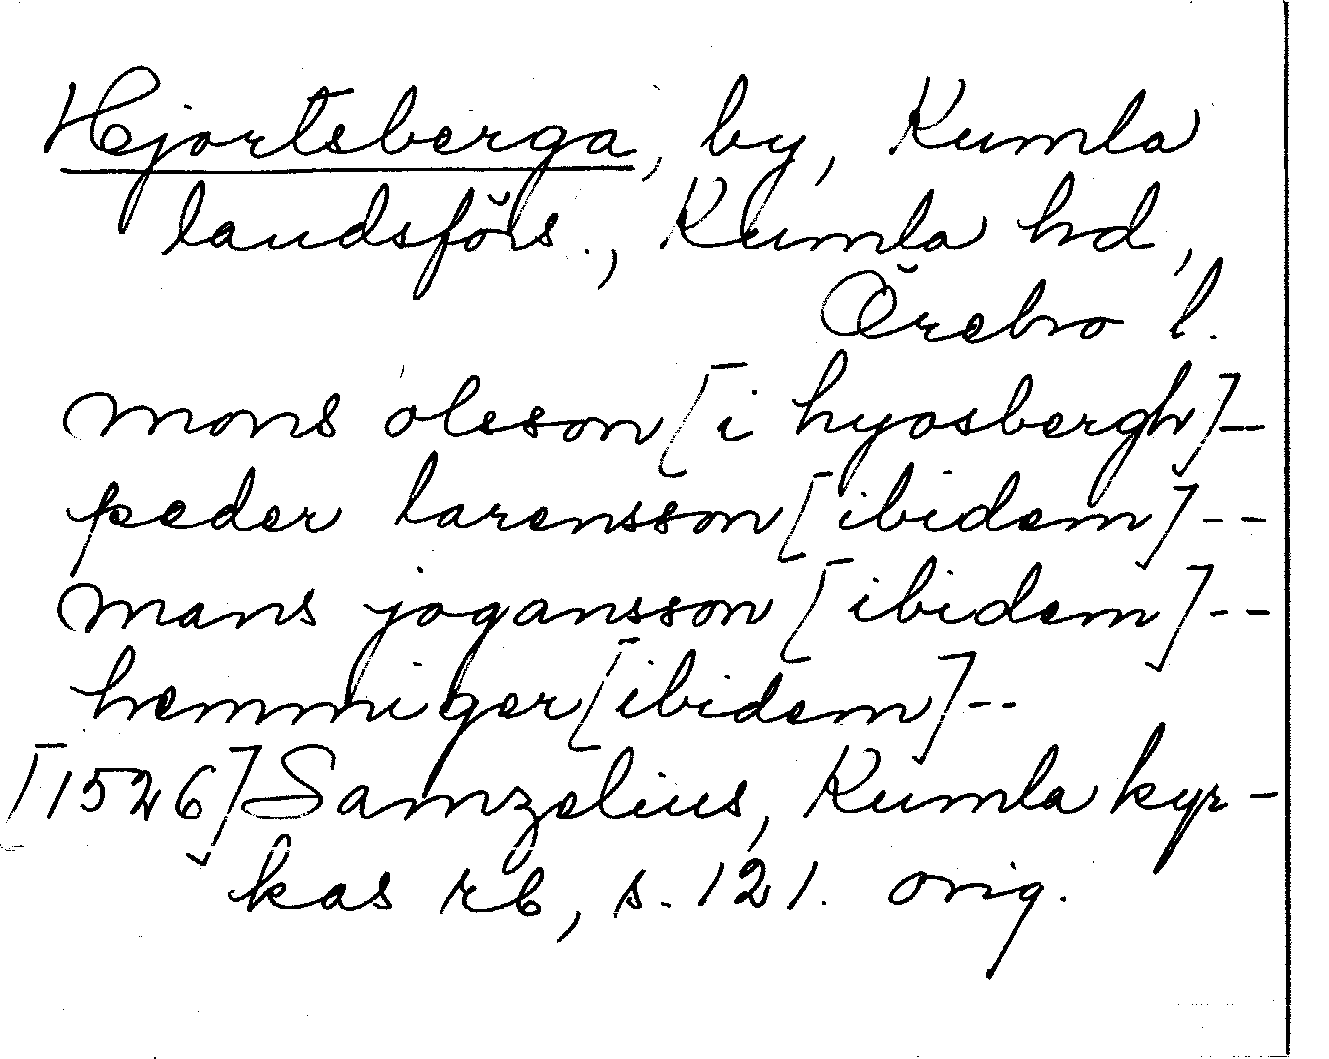 Hjortsberga, by, Kumla
landsförs., Kumla hd,
Örebro l.
mons oleson [i hyosbergh] -
peder larensson [ibidem] --
mans jogansson [ibidem] --
hemmiger [ibidem] --
[1526] Samzelius, Kumla kyr-
kas rb, s. 121. orig.